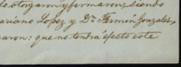 lo otorgaron y firmaron, siendo
ariano Lopez y Dn. Fermin Gonzales,
aron: que no tendrá efecto este